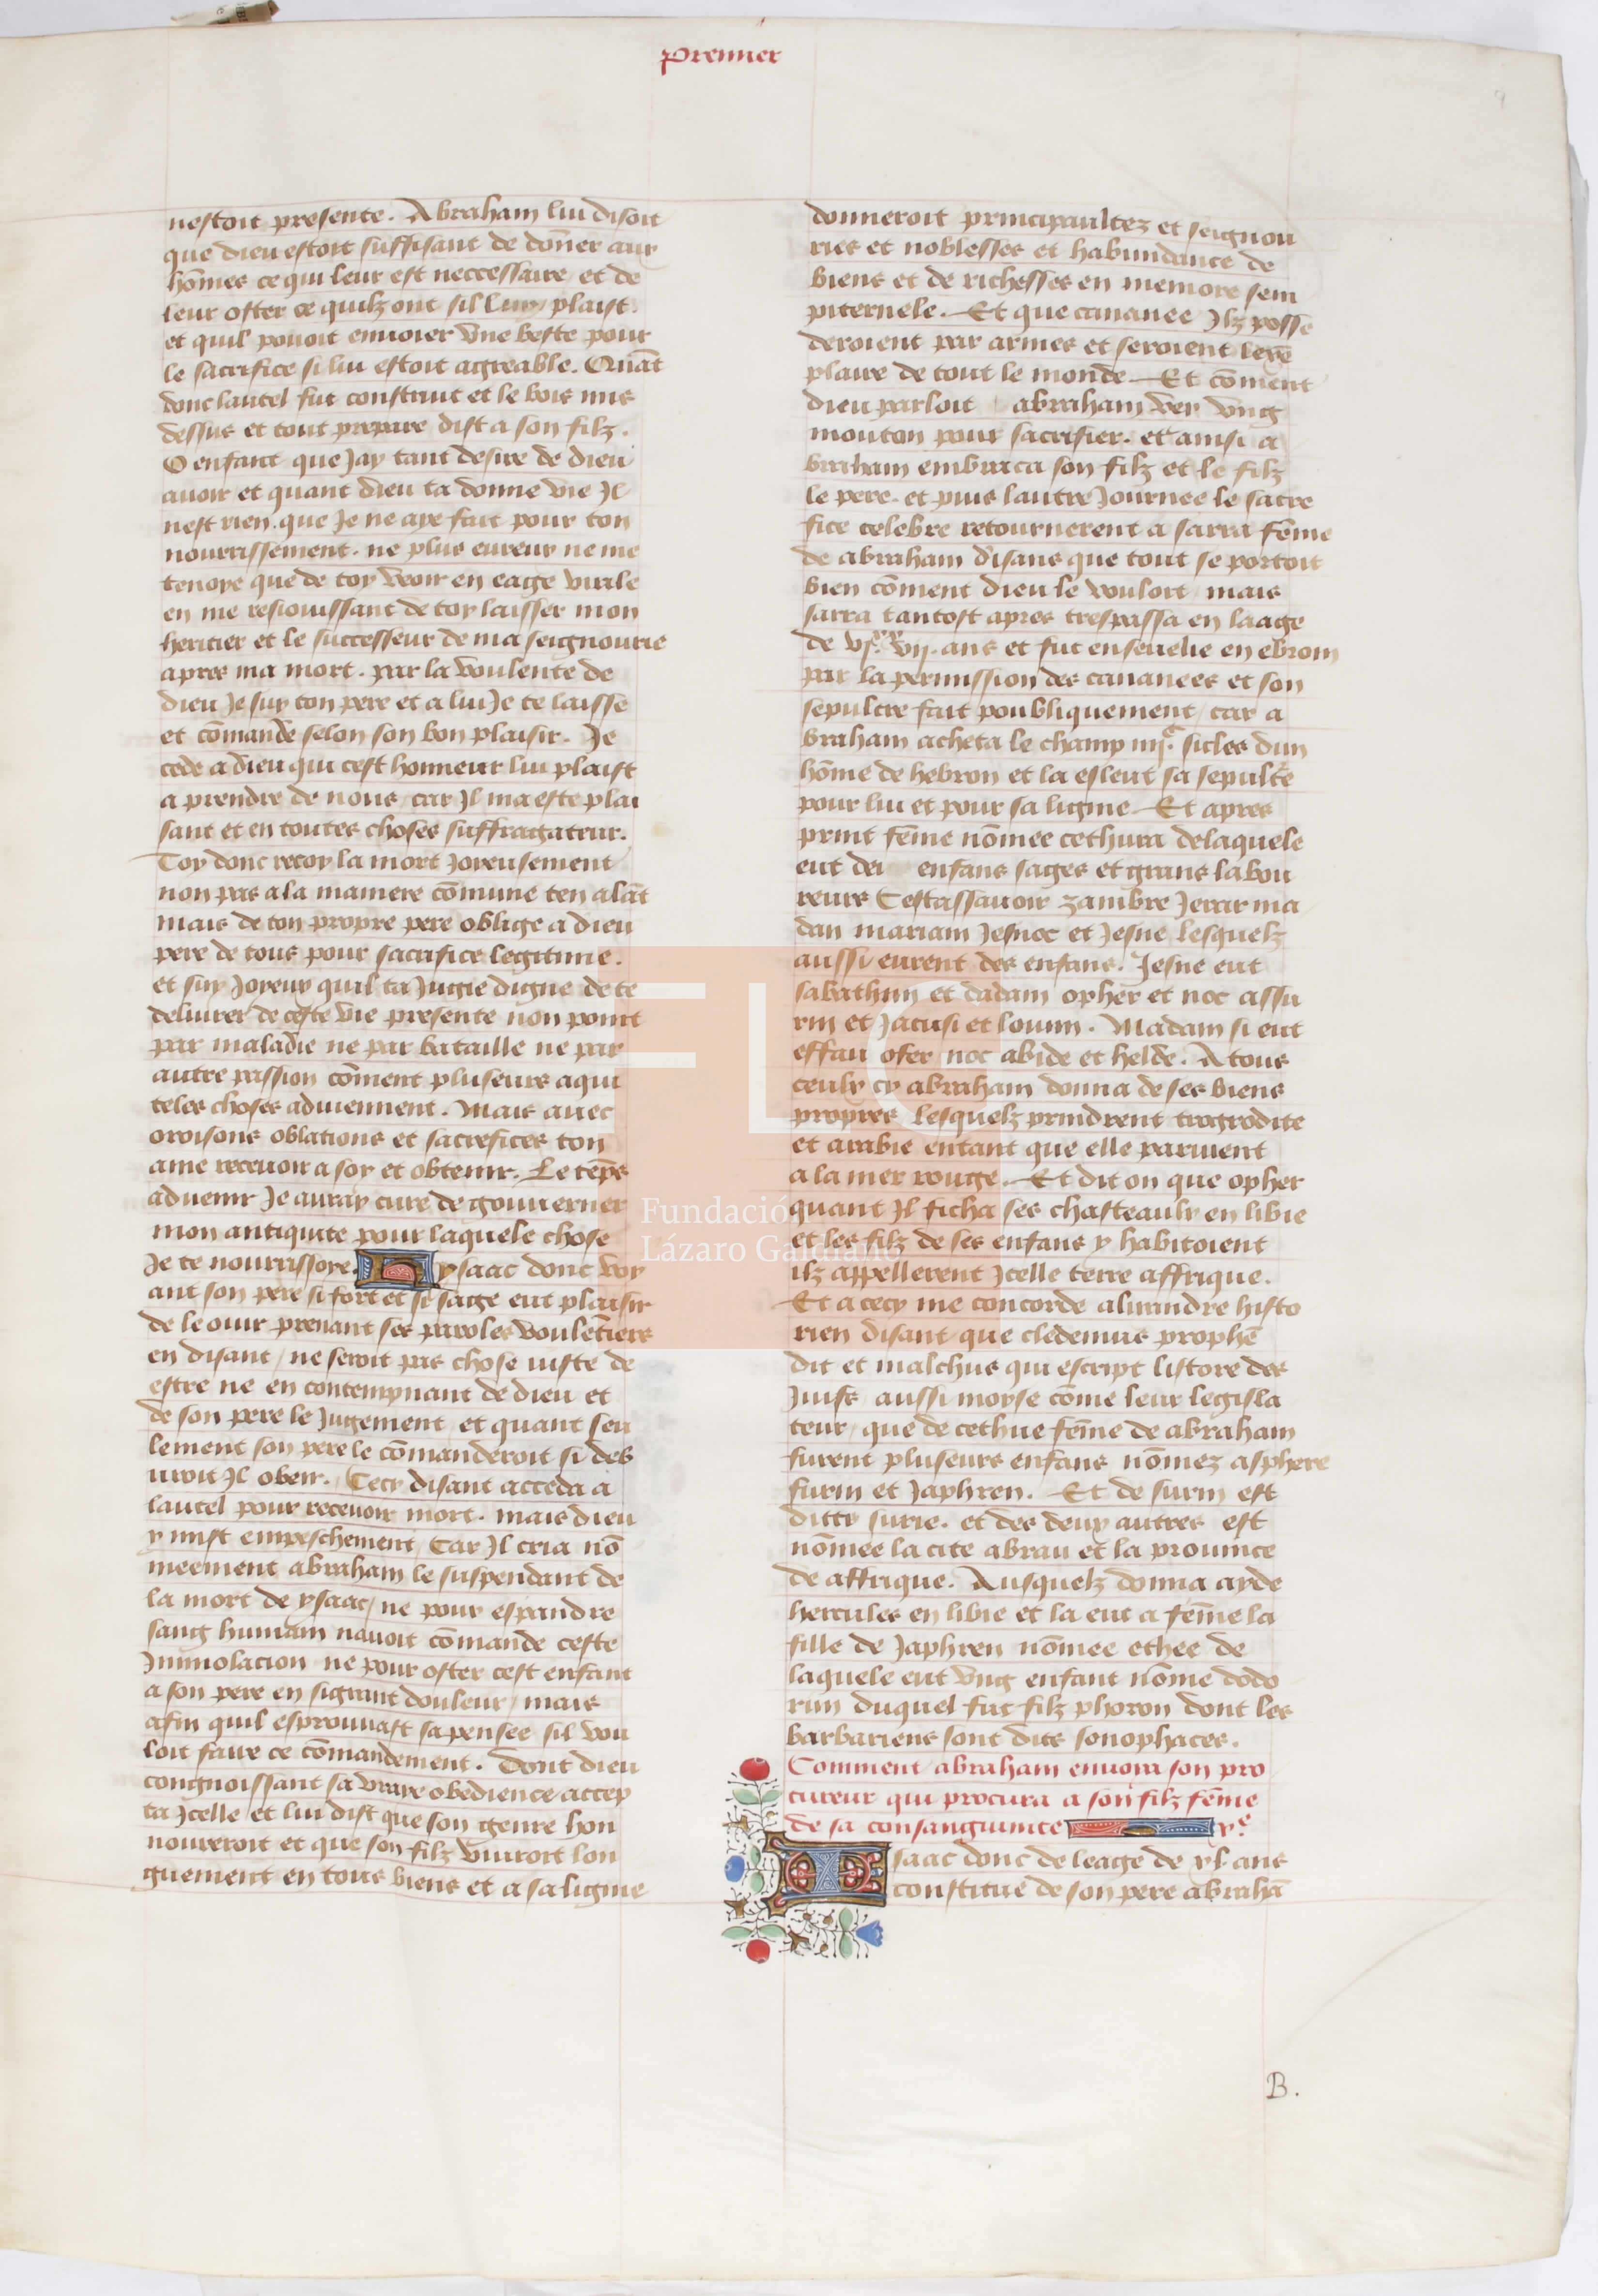 Premier
9
nestoit presente. Abraham lui disoit
que dieu estoit suffisant de don̄er aux
hōmes ce qui leur est neccessaire et de
leur oster ce quilz ont sil luy plaist.
et quil pouoit enuoier vne beste pour
le sacrifice si lui estoit agreable. Quāt
donc lautel fut construit et le bois mis
dessus et tout prepare dist a son filz.
O enfant que Jay tant desire de dieu
auoir et quant dieu ta donne vie Jl
nest rien que Je ne aye fait pour ton
nourrissement. ne plus eureux ne me
tenoye que de toy veoir en eage virile
en me resiouissant de toy laisser mon
heritier et le successeur de ma seignourie
apres ma mort. par la voulente de
dieu Je suy ton pere et a lui Je te laisse
et cōmande selon son bon plaisir. Je
cede a dieu qui cest honneur lui plaist
a prendre de nous car Jl ma este plai
sant et en toutes choses suffragateur.
Toy donc recoy la mort Joyeusement
non pas a la maniere cōmune ten alāt
mais de ton propre pere oblige a dieu
pere de tous pour sacrifice legitime.
et suy Joyeux quil ta Jugie digne de te
deliurer de ceste vie presente non point
par maladie ne par bataille ne par
autre passion cōment pluseurs a qui
teles choses aduiennent. Mais auec
oroisons oblations et sacrefices ton
ame receuoir a soy et obtenir. Le tēps
aduenir Je auray cure de gouuerner
mon antiquite pour laquele chose
Je te nourrissoye. ysaac donc voy
ant son pere si fort et si sage eut plaisir
de le ouir prenant ses paroles voulētiers
en disant / ne seroit pas chose iuste de
estre ne en contempnant de dieu et
de son pere le Jugement et quant seu
lement son pere le cōmanderoit si deb
uroit Jl obeir. Cecy disant acceda a
lautel pour receuoir mort. mais dieu
y mist empeschement Car Jl cria nō
meement abraham le suspendant de
la mort de ysaac / ne pour espandre
sang humain nauoit cōmande ceste
Jmmolacion ne pour oster cest enfant
a son pere en signant douleur / mais
afin quil esprouuast sa pensee sil vou
loit faire ce cōmandement. Dont dieu
congnoissant sa vraye obedience accep
ta Jcelle et lui dist que son genre hon
noureroit et que son filz viuroit lon
guement en tous biens et a sa lignie
donneroit principaultez et seignou
ries et noblesses et habundance de
biens et de richesses en memore sem
piternele. Et que cananee Jlz posse
deroient par armes et seroient lexē
plaire de tout le monde. Et cōment
dieu parloit abraham ver vng
mouton pour sacrifier. et ainsi a
braham embraca son filz et le filz
le pere. et puis lautre Journee le sacre
fice celebre retournerent a sarra fēme
de abraham disans que tout se portoit
bien cōment dieu le vouloit / mais
sarra tantost apres trespassa en laage
de vj.xx vij. ans et fut enseuelie en ebrom
par la permission des cananees et son
sepulcre fait poubliquement / car a
braham acheta le champ iiij.c sicles dun
hōme de hebron et la esleut sa sepultē
pour lui et pour sa lignie. Et apres
print fēme nōmee cethura delaquele
eut dei enfans sages et grans labou
reurs Cestassauoir zambre Jerar ma
dan mariam Jesuoc et Jesue lesquelz
aussi eurent des enfans. Jesue eut
sabathun et dadam opher et noc assu
rin et Jacusi et louim. Madam si eut
effau ofer noc abide et helde. A tous
ceulx cy abraham donna de ses biens
propres lesquelz prindrent trogrodite
et arabie entant que elle paruient
a la mer rouge. Et dit on que opher
quant Jl ficha ses chasteaulx en libie
et les filz de ses enfans y habitoient
ilz appellerent Jcelle terre affrique.
Et a cecy me concorde alixandre histo
rien disant que cledemus prophē
dit et malchus qui escript listore des
Juifs aussi moyse cōme leur legisla
teur / que de cethue fēme de abraham
furent pluseurs enfans nōmez asphere
surin et Japhren. Et de surin est
ditte surie. et des deux autres est
nōmee la cite abrau et la prouince
de affrique. Ausquelz donna ayde
hercules en libie et la eut a fēme la
fille de Japhren nōmee ethee de
laquele eut vng enfant nōme dodo
rim duquel fut filz phoron dont les
barbariens sont dits sonophaces.
Comment abraham enuoia son pro
cureur qui procura a son filz fēme
de sa consanguinite xe.
Isaac donc de leage de xl. ans
constitue de son pere abrahā
B.
Fundación
Lázaro Galdiano
FLG